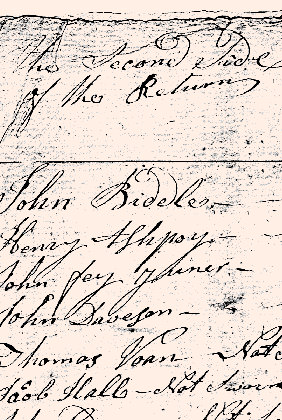 the Second Side
of the Return
John Biddle
Henry Ashpoy
John
John Daveson
Thomas Voan Not
Jacob Hall - Not Sworn